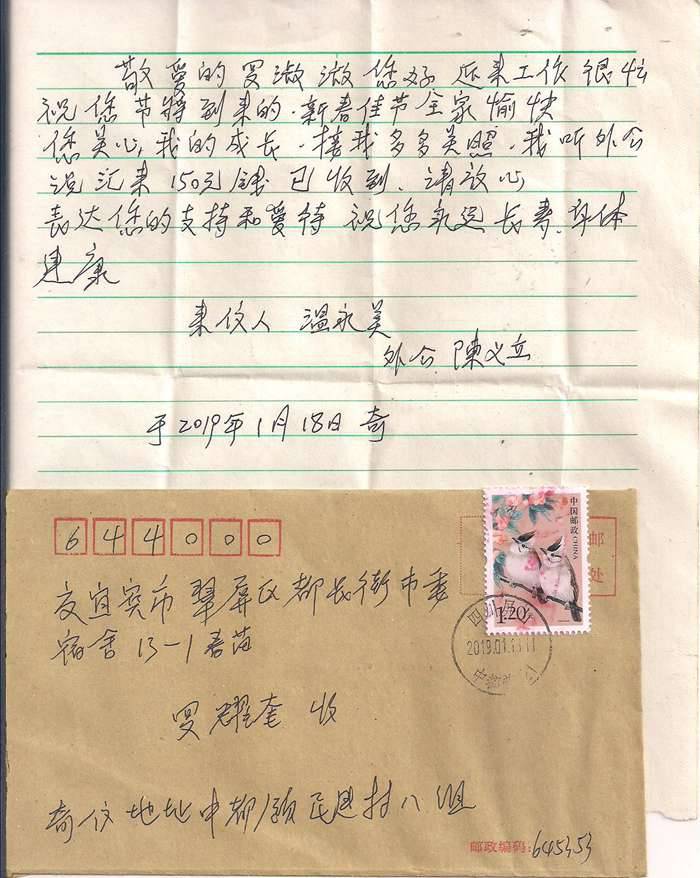 敬爱的罗淑淑您好 近来工作很忙
祝您节特到来的.新春佳节全家愉快
您关心,我的成长.接我多多关照.我听外公
说汇来150元钱已收到.请放心
表达您的支持和爱待 祝您永远长寿.身体
建康
来仪人 温永美
外公 陳义立
于2019年1月18日 奇
644000
中国邮政 CHINA
邮
处
1.20
四川
2019.01.
交宜宾市翠屏区都长街市委
宿舍13-1春苗
罗耀奎 收
奇仪地址中都镇民思村八组
邮政编码:645353